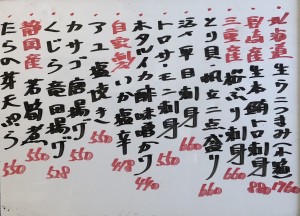 北海道産 生うにつまみ(本道) 1760
長崎産 生本鮪トロ刺身 880
三重産 岩ぶり刺身 660
とり貝・帆立二点盛り 660
活〆平目刺身 660
トロサーモン刺身 550
ホタルイカ酢味噌かけ 440
自家製 いか塩辛 418
アユ塩焼き 550
カサゴ唐揚げ 550
くじら竜田揚げ 528
静岡産 若筍煮 550
たらの芽天ぷら 550